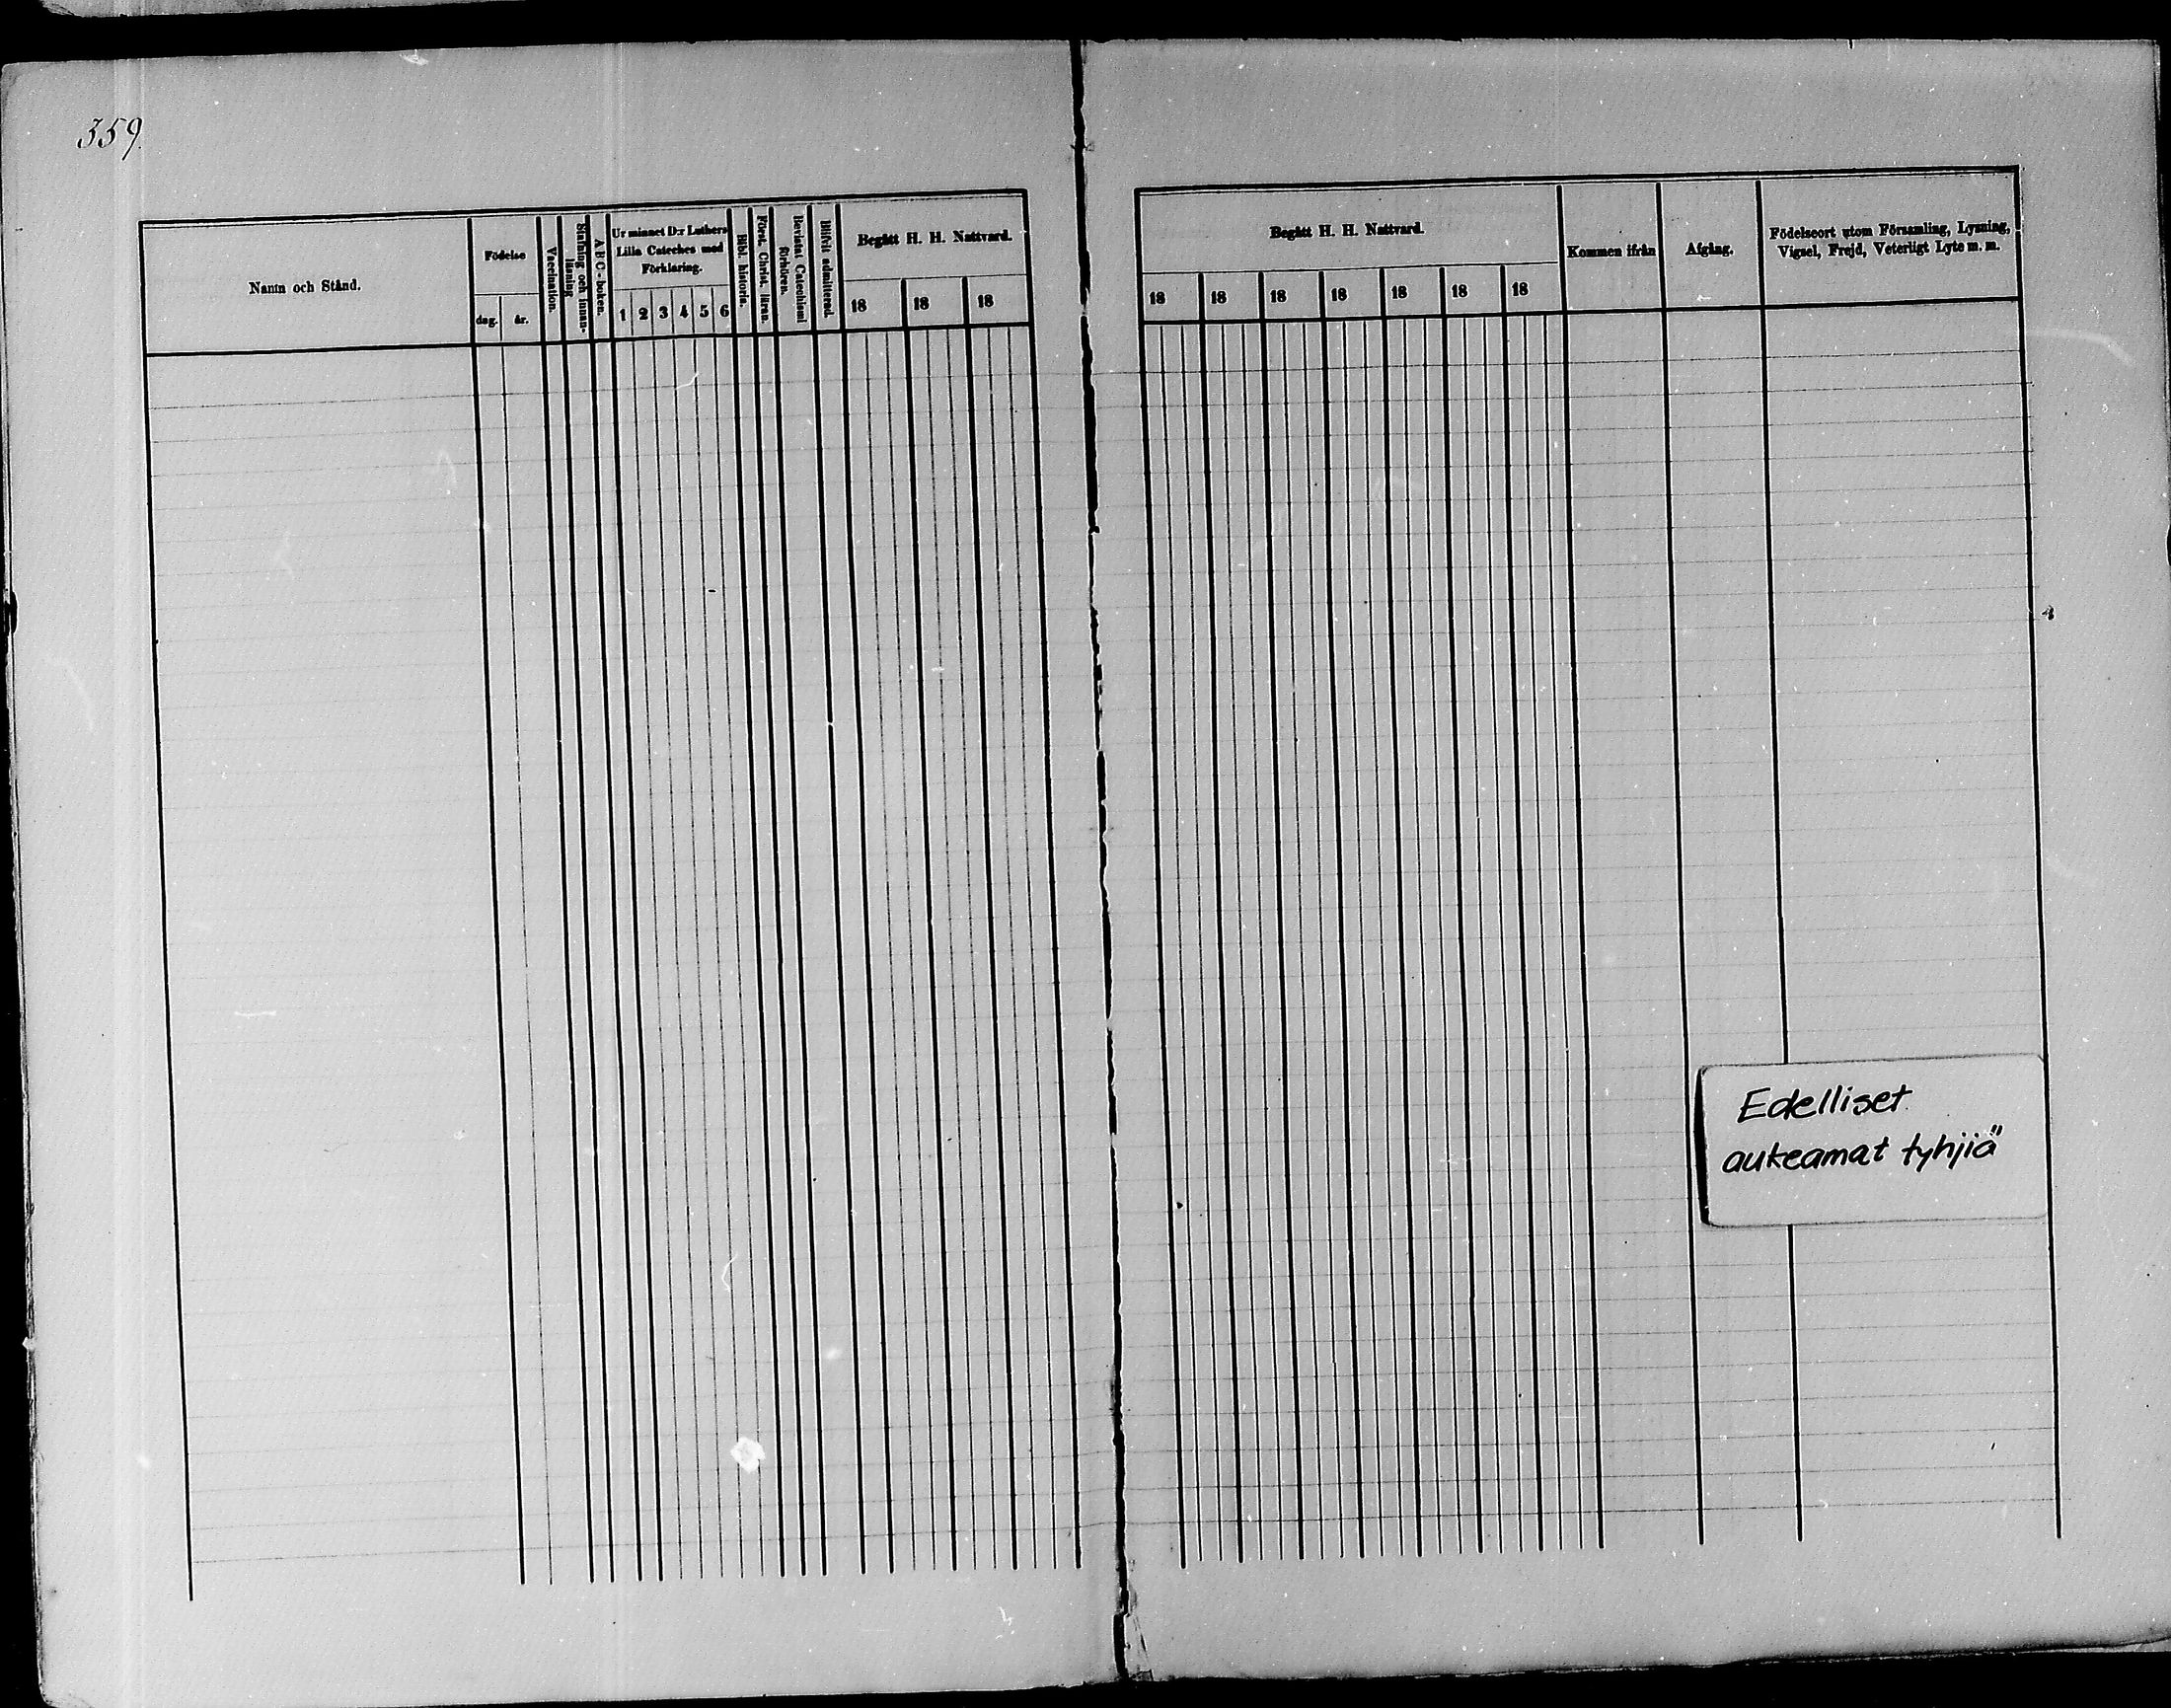 359.
Namn och Stånd.
Födelse
dag.
år.
Vaccination.
Stafning och innan-
läsning
ABC-boken.
Ur minnet D:r Luthers
Lilla Cateches med
Förklaring.
1 2 3 4 5 6
Bibl. historia.
Först. Christ. läran.
Bevistat Catechismi
förhören.
Blifvit admitterad.
Begått H. H. Nattvard.
18 18 18
Begått H. H. Nattvard.
18 18 18 18 18 18 18
Kommen ifrån
Afgång.
Födelseort utom Församling, Lysning,
Vigsel, Frejd, Veterligt Lyte m. m.
Edelliset
aukeamat tyhjiä